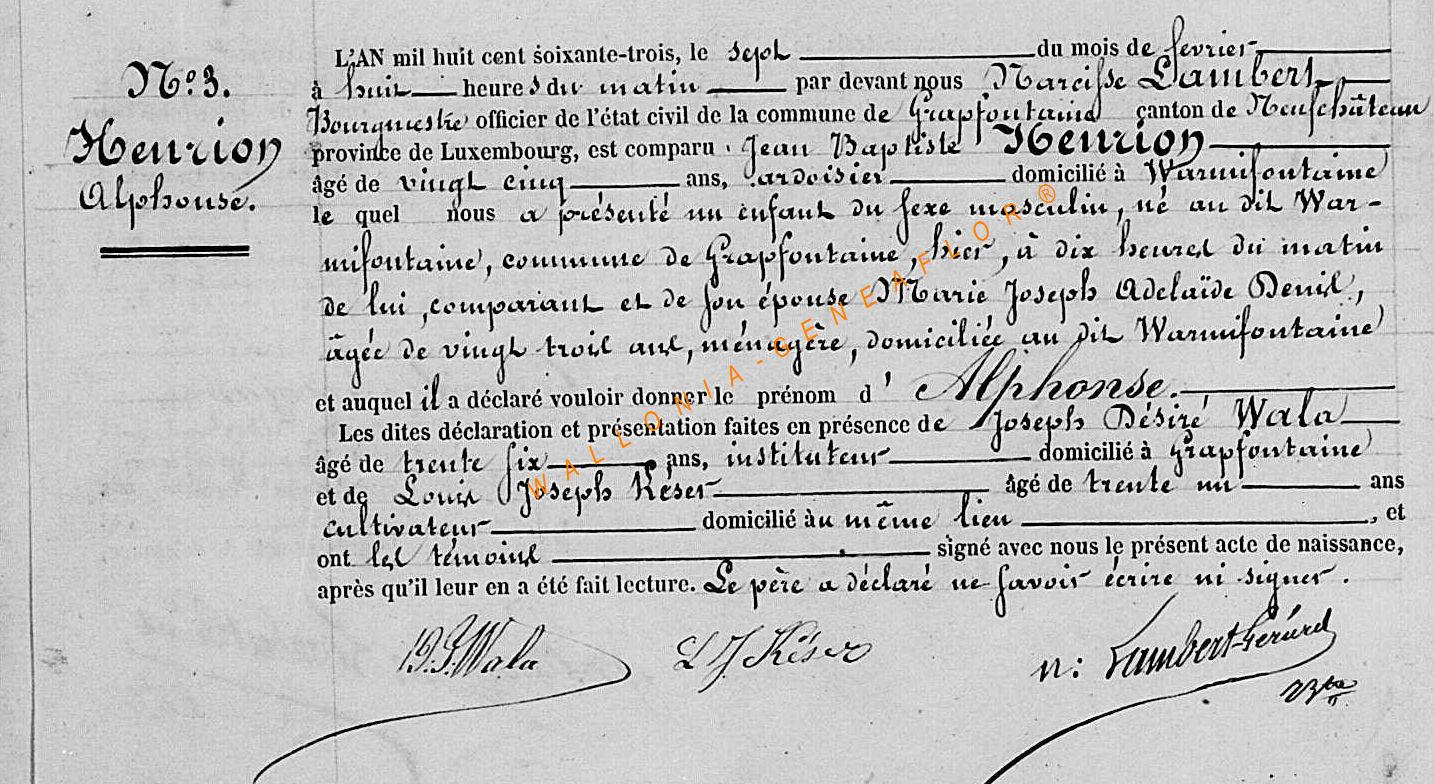 N° 3.
Henrion
Alphonse.
L'AN mil huit cent soixante-trois, le sept du mois de fevrier
à huit heures du matin par devant nous Narcisse Lambert,
Bourgmestre officier de l'état civil de la commune de Grapfontaine canton de Neufchâteau
province de Luxembourg, est comparu Jean Baptiste Henrion
âgé de vingt cinq ans, ardoisier domicilié à Warmifontaine
le quel nous a présenté un enfant du sexe masculin, né au dit War-
mifontaine, commune de Grapfontaine, hier, à dix heures du matin
de lui, comparant et de son épouse Marie Joseph Adelaïde Denis,
âgée de vingt trois ans, ménagère, domiciliée au dit Warmifontaine
et auquel il a déclaré vouloir donner le prénom d'Alphonse.
Les dites déclaration et présentation faites en présence de Joseph Désiré Wala
âgé de trente six ans, instituteur domicilié à Grapfontaine
et de Louis Joseph Késer âgé de trente un ans
cultivateur domicilié au même lieu, et
ont les témoins signé avec nous le présent acte de naissance,
après qu'il leur en a été fait lecture. Le père a déclaré ne savoir écrire ni signer.
Wala
L J Késer
N: Lambert-Gérard
WALLONIA-GENEAFLOR®